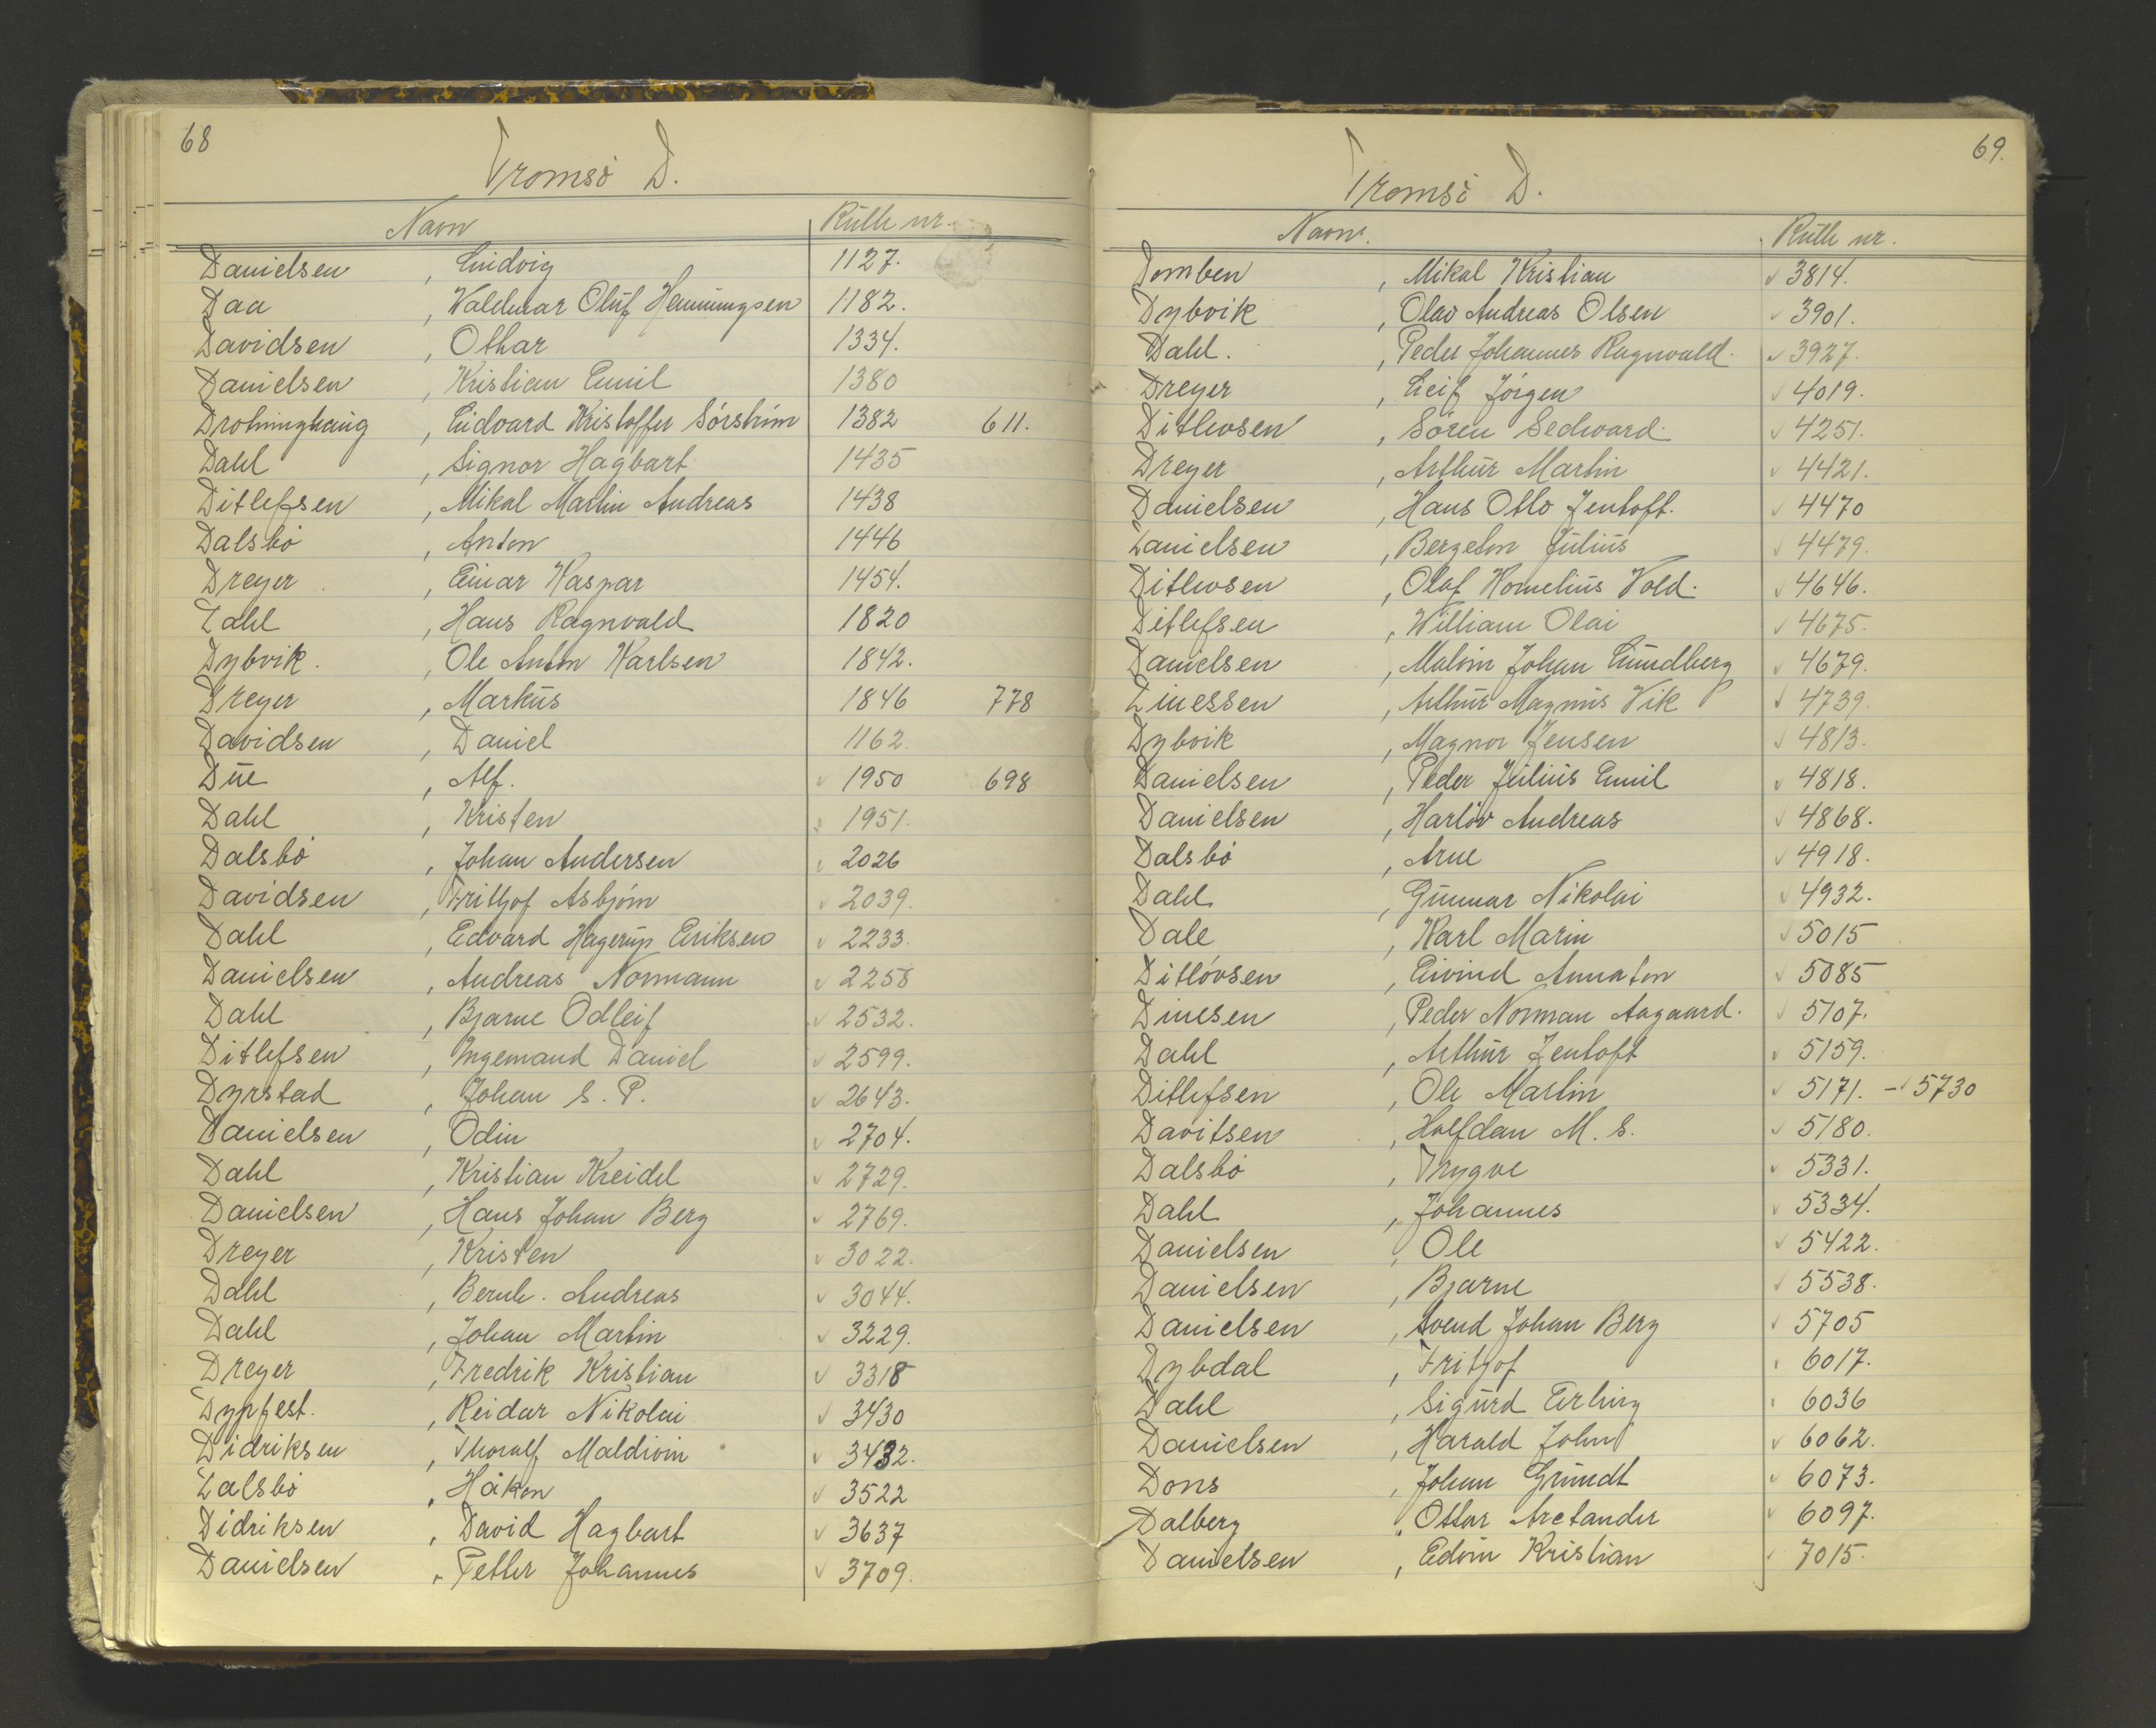 68
Tromsö D.
Navn Rulle nr.
Danielsen , Ludvig 1127.
Daa , Waldemar Oluf Henningsen 1182.
Davidsen , Othar 1334.
Danielsen , Kristian Emil 1380
Drotninghaug , Edvard Kristoffer Sörström 1382 611.
Dahl , Signor Hagbart 1435
Ditlefsen , Mikal Martin Andreas 1438
Dalsbö , Anton 1446
Dreyer , Einar Kaspar 1454.
Dahl , Hans Ragnvald 1820
Dybvik. , Ole Anton Karlsen 1842.
Dreyer , Markus 1846 778
Davidsen , Daniel 1162.
Due , Alf. 1950 698
Dahl , Kristen 1951.
Dalsbö , Johan Andersen 2026
Davidsen , Frithjof Asbjörn 2039.
Dahl , Edvard Hagerup Eriksen 2233.
Danielsen , Andreas Normann 2258
Dahl , Bjarne Odleif 2532.
Ditlefsen , Ingemand Daniel 2599.
Dyrstad , Johan S. P. 2643.
Danielsen , Odin 2704.
Dahl , Kristian Kreidel 2729.
Danielsen , Hans Johan Berg 2769.
Dreyer , Kristen 3022.
Dahl , Bernh. Andreas 3044.
Dahl , Johan Martin 3229.
Dreyer , Fredrik Kristian 3318
Dypfest. , Reidar Nikolai 3430
Didriksen , Thoralf Maldivin 3432.
Dalsbö , Håkon 3522
Didriksen , David Hagbart 3637
Danielsen , Petter Johannes 3709.
69.
Tromsö D.
Navn. Rulle nr.
Domben , Mikal Kristian 3814.
Dybvik , Olav Andreas Olsen 3901.
Dahl. , Peder Johannes Ragnvald. 3927.
Dreyer , Leif Jörgen 4019.
Ditlevsen , Sören Sedvard. 4251.
Dreyer , Arthur Martin 4421.
Danielsen , Hans Otto Jentoft. 4470
Danielsen , Bergeton Julius 4479.
Ditlevsen , Olaf Kornelius Vold. 4646.
Ditlefsen , William Olai 4675.
Danielsen , Malvin Johan Lundberg 4679.
Dinessen , Arthur Magnus Vik 4739.
Dybvik , Magnor Jensen 4813.
Danielsen , Peder Julius Emil 4818.
Danielsen , Harlöv Andreas 4868.
Dalsbö , Arne 4918.
Dahl , Gunnar Nikolai 4932.
Dale , Karl Marin 5015
Ditlövsen , Eivind Annaton 5085
Dinesen , Peder Norman Aagaard. 5107.
Dahl , Arthur Jentoft 5159.
Ditlefsen , Ole Martin 5171. - 5730
Davitsen , Halfdan M. S. 5180.
Dalsbö , Trygve 5331.
Dahl , Johannes 5334.
Danielsen , Ole 5422.
Danielsen , Bjarne 5538.
Danielsen , Svend Johan Berg 5705
Dybdal , Frithjof 6017.
Dahl , Sigurd Erling 6036
Danielsen , Harald John 6062.
Dons , Johan Grundt 6073.
Dalberg , Ottar Aretander 6097.
Danielsen , Edvin Kristian 7015.